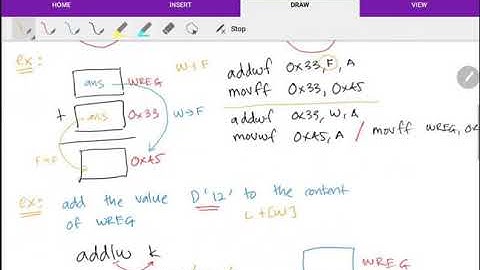 HOME INSERT DRAW VIEW
Stop
ex:
ans WREG
W+F
addwf 0x33, F, A
movff 0x33, 0x45
+ ans 0x33
W→F
addwf 0x33, W, A
movwf 0x45, A / movff WREG, 0x
F→F
0x45
ex: add the value D'12' to the content
of WREG
L+[W]
addlw k
WREG